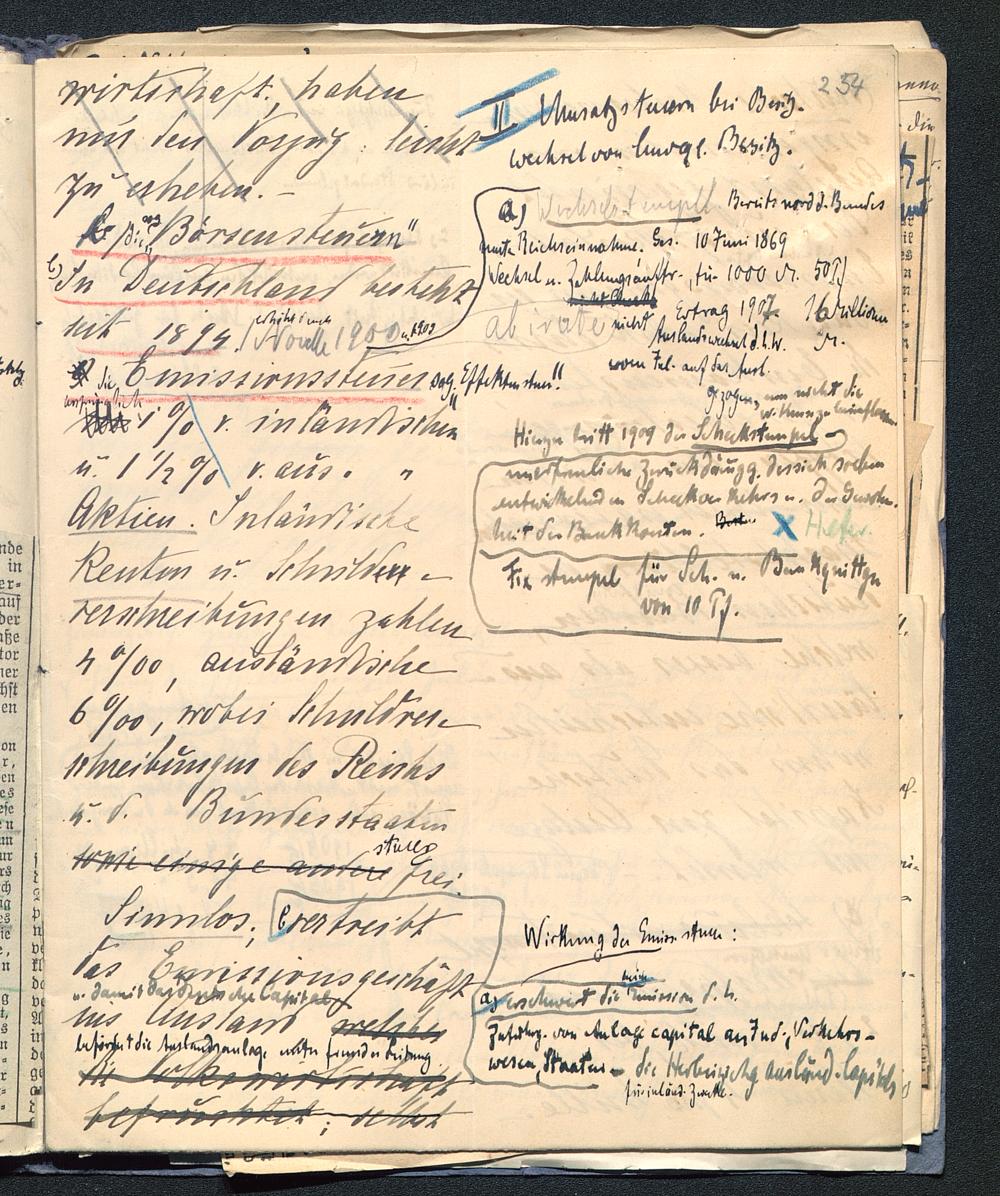 254
wirtschaft, haben
nur den Vorzug leicht
zu erheben. -
die „Börsensteuern“
In Deutschland besteht
seit 1894, erhöht durch Novelle 1900 u. 1909
die Emissionssteuer, sog. Effektensteuer“
ursprünglich 1 % v. inländischen
u. 1 1/2 % v. aus. "
Aktien. Inländische
Renten u. Schuldver-
verschreibungen zahlen
4 ‰, ausländische
6 ‰, wobei Schuldver-
schreibungen des Reichs
u. d. Bundesstaaten
sowie einige andere frei.
Sinnlos, vertreibt
das Emissionsgeschäft
u. damit das deutsche Capital
ins Ausland welches
befördert die Auslandsanlage unter fremder Leitung
die Volkswirtschaft
befruchtet; selbst
II Umsatzsteuern bei Besitz-
wechsel von bewegl. Besitz.
a) Wechselstempel. Bereits nordd. Bundes
Reichseinnahme. Ges. 10 Juni 1869
Wechsel u. Zahlungsauftr., für 1000 M. 50 Pf
nicht Checks
Ertrag 1907 16 Millionen
M.
nicht Auslandswechsel d. h. W.
vom Inl. auf das Ausl.
gezogen, um nicht die
Hierzu tritt 1909 der Scheckstempel
unerfreuliche Zurückdrängg. des sich soeben
entwickelnden Scheckverkehrs u. der Gewohn-
heit der Bankkonten. X Helfer.
Fixstempel für Sch. u. Bankquittgn
von 10 Pf.
Wirkung der Emiss. steuer:
a) erschwert die Emission d. h.
Zuführg. von Anlagecapital an Ind., Verkehrs-
wesen, Staaten - die Herbeiziehg ausländ. Capitals
für inländ. Zwecke.